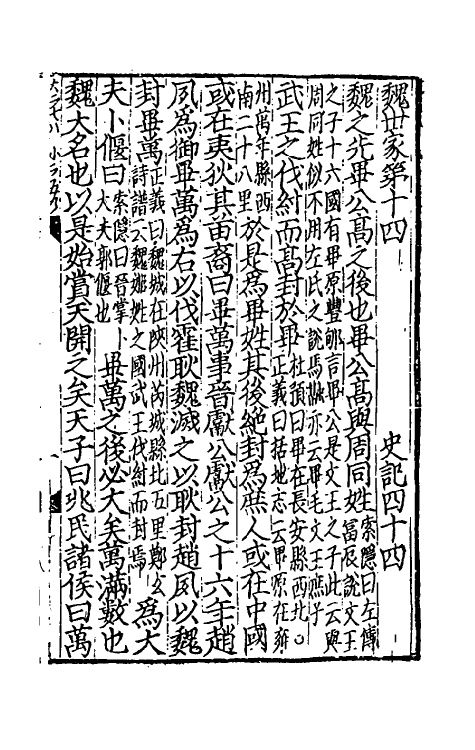 魏世家第十四　史記四十四
魏之先畢公高之後也畢公高與周同姓索隱曰左傳富辰說文王
之子十六國有畢原豐郇言畢公是文王之子此云與
周同姓似不用左氏之說馬融亦云畢毛文王庶子
武王之伐紂而高封於畢杜預曰畢在長安縣西北○正義曰括地志云畢原在雍
州萬年縣西南二十八里於是爲畢姓其後絶封爲庶人或在中國
或在夷狄其苗裔曰畢萬事晉獻公獻公之十六年趙
夙爲御畢萬爲右以伐霍耿魏滅之以耿封趙夙以魏
封畢萬正義曰魏城在陝州芮城縣北五里鄭玄詩譜云魏姬姓之國武王伐紂而封焉爲大
夫卜偃曰索隱曰晉掌卜大夫郭偃也畢萬之後必大矣萬滿數也
魏大名也以是始賞天開之矣天子曰兆民諸侯曰萬